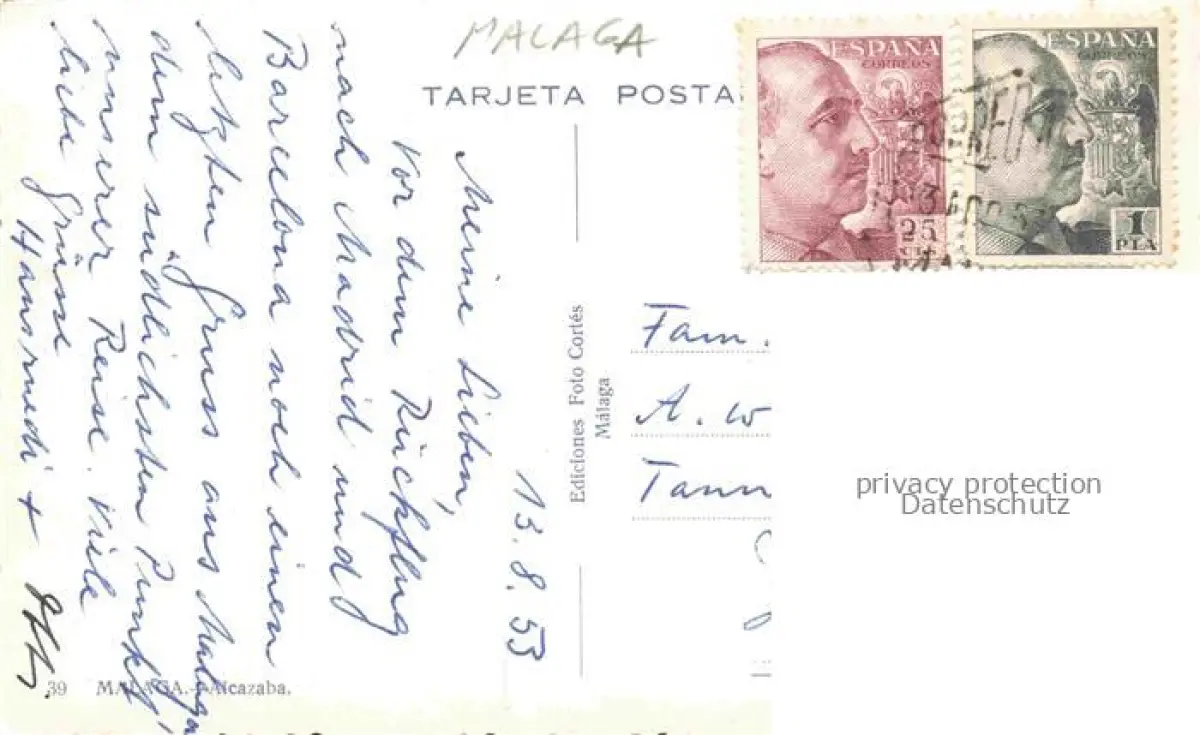 MALAGA
TARJETA POSTA
ESPAÑA
CORREOS
25
ESPAÑA
CORREOS
1
PTA
CORREO
13 AGO 53
13.8.53
Meine Lieben,
Vor dem Rückflug
nach Madrid und
Barcelona noch einen
letzten Gruss aus Malaga,
dem südlichsten Punkt
unserer Reise. Viele
liebe Grüsse
Hansruedi +
Ediciones Foto Cortés
Málaga
Fam.
A. W
Tann
privacy protection
Datenschutz
39 MALAGA.-Alcazaba.